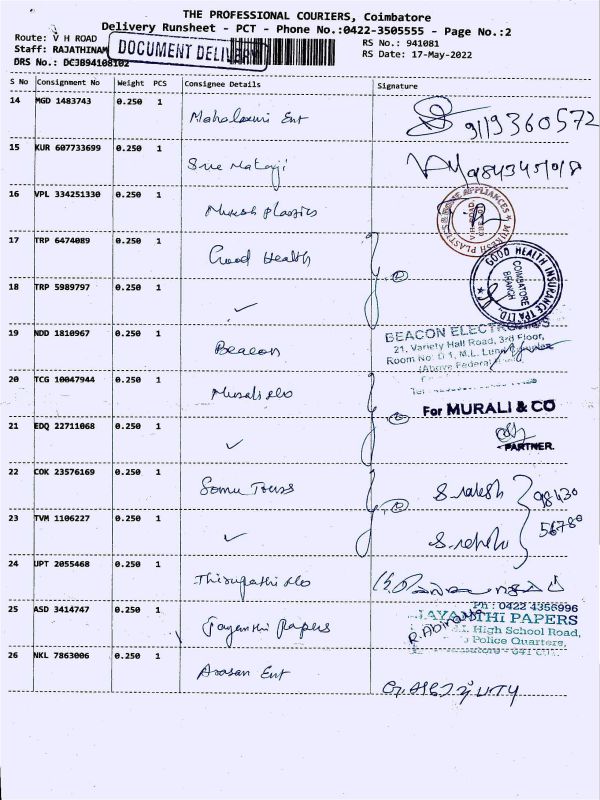 THE PROFESSIONAL COURIERS, Coimbatore
Delivery Runsheet - PCT - Phone No.:0422-3505555 - Page No.:2
Route: V H ROAD
RS No.: 941081
Staff: RAJATHINAM
RS Date: 17-May-2022
DOCUMENT DELIVERY
DRS No.: DCJB94108102
S No Consignment No Weight PCS Consignee Details Signature
14 MGD 1483743 0.250 1 Mahalaxmi Ent 9119360572
15 KUR 607733699 0.250 1 Sree Mataji
16 VPL 334251330 0.250 1 Mukesh plastics
HOME APPLIANCES * MUKESH PLASTICS
V.H. ROAD
17 TRP 6474089 0.250 1 Good Health
GOOD HEALTH INSURANCE TPA LTD.
COIMBATORE
BRANCH
18 TRP 5989797 0.250 1 ✓
19 NDD 1810967 0.250 1 Beacon
BEACON ELECTRONICS
21, Variety Hall Road, 3rd Floor,
Room No. D 1, M.L.
(Above Federal
20 TCG 10047944 0.250 1
For MURALI & CO
21 EDQ 22711068 0.250 1 ✓
PARTNER.
22 COK 23576169 0.250 1 Somu Tourss 98430
23 TVM 1106227 0.250 1 ✓ 56780
24 JPT 2055468 0.250 1 Thirupathi
25 ASD 3414747 0.250 1 Jayanthi Papers
Ph : 0422 4356996
JAYANTHI PAPERS
High School Road,
Police Quarters,
26 NKL 7863006 0.250 1 Arasan Ent